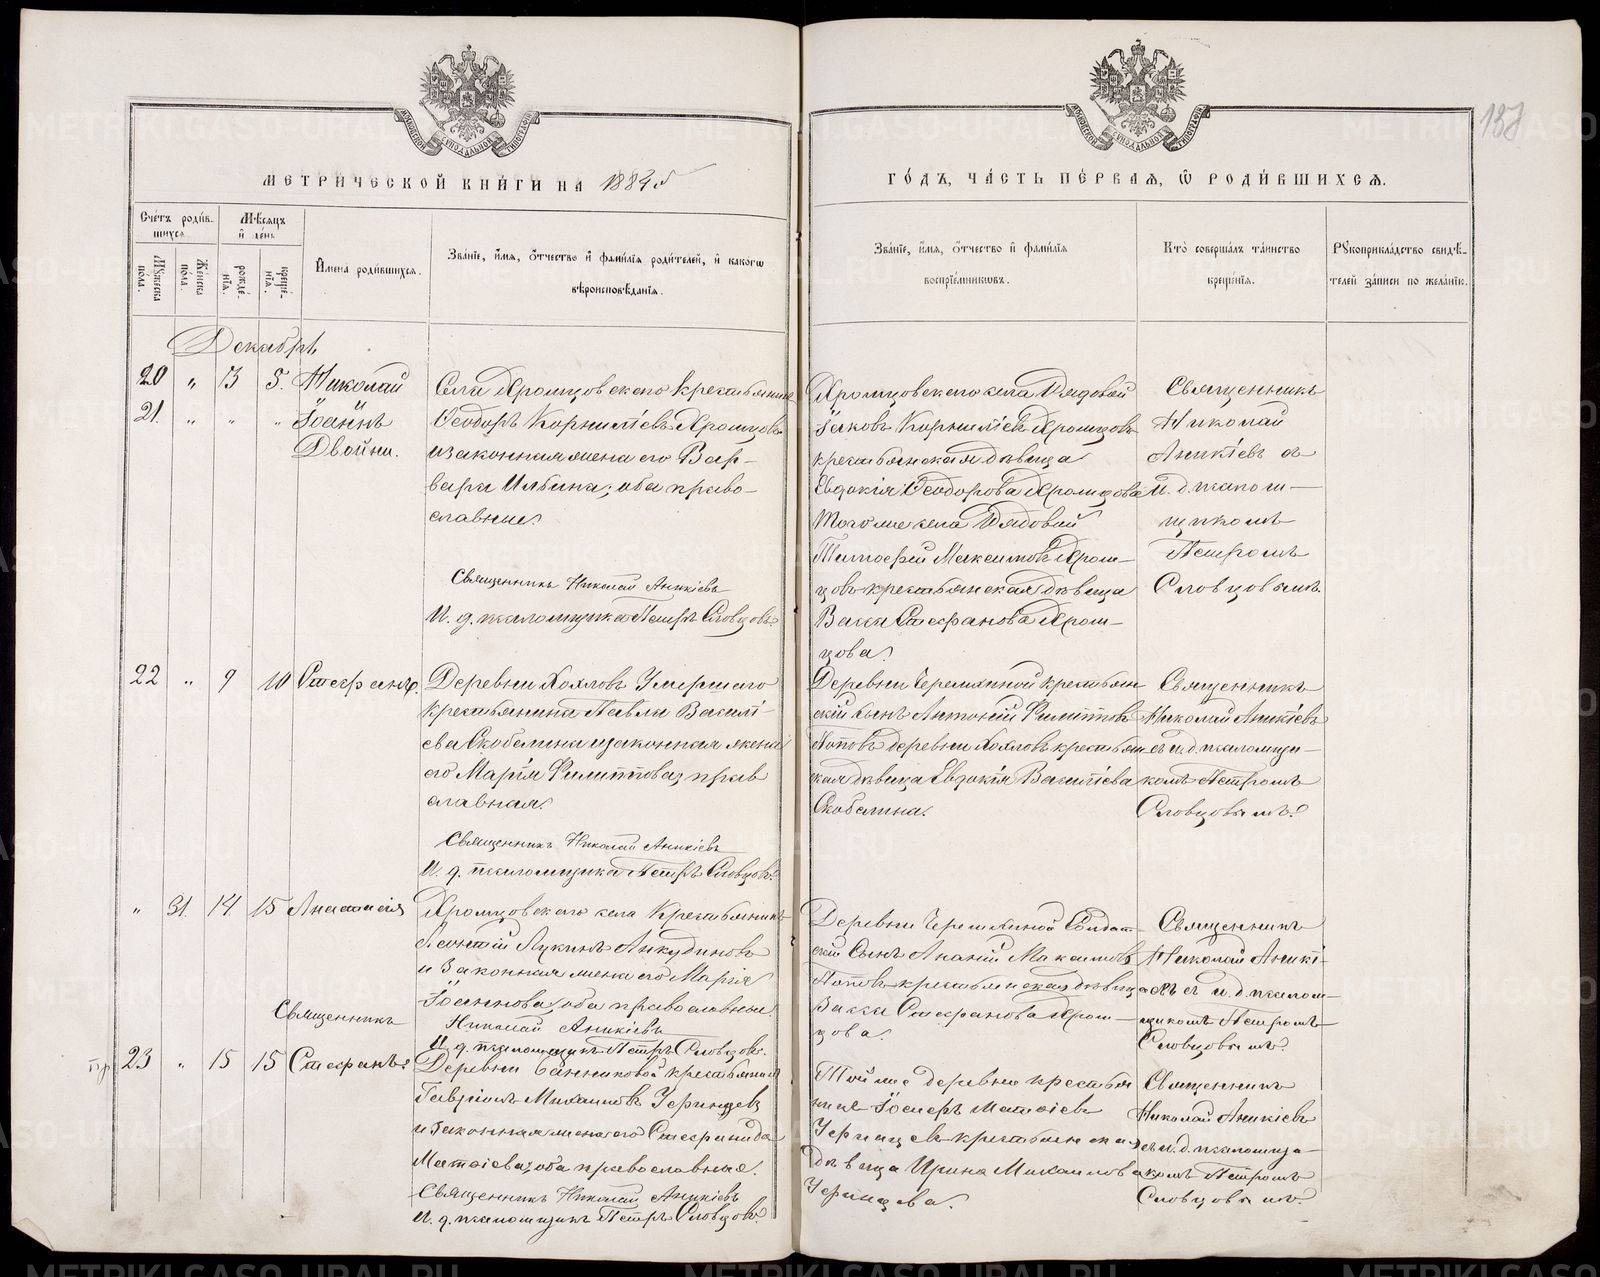 187
МЕТРИЧЕСКОЙ КНИГИ НА 1884й
ГОДЪ, ЧАСТЬ ПЕРВАЯ, Ѡ РОДИВШИХСЯ.
Счетъ родив-
шихся
Мѣсяцъ
и день
Мужеска пола.
Женска пола.
рожде-
нія.
креще-
нія.
Имена родившихся.
Званіе, имя, отчество и фамилія родителей, и какогѡ
вѣроисповѣданія.
Званіе, имя, отчество и фамилія
воспріемниковъ.
Кто совершалъ таинство
крещенія.
Рукоприкладство свидѣ-
телей записи по желанію.
Декабрь
20 " 3 5. Николай
21. " " " Іоаннъ
Двойни.
Села Хромцовскаго крестьянинъ
Ѳеодоръ Корниліевъ Хромцовъ
и законная жена его Вар-
вара Ильина; оба право-
славные.
Священникъ Николай Аникіевъ
И. д. псаломщика Петръ Словцовъ
Хромцовскаго села Рядовой
Іаковъ Корниліевъ Хромцовъ
крестьянская дѣвица
Евдокія Ѳеодорова Хромцова
того же села Рядовой
Тимофей Максимовъ Хром-
цовъ крестьянская дѣвица
Васса Стефанова Хром-
цова.
Священникъ
Николай
Аникіевъ съ
и. д. псалом-
щикомъ
Петромъ
Словцовымъ.
22 " 9 10 Стефанъ.
Деревни Хохловъ Умершаго
крестьянина Павла Василі-
ева Скобелина законная жена
его Марія Филиппова; прав
славная.
Священникъ Николай Аникіевъ
И. д. псаломщика Петръ Словцовъ.
Деревни Черемхиной крестьян
скій сынъ Антоній Филипповъ
Поповъ деревни Хохловъ крестьян
ская дѣвица Евдокія Василіева
Скобелина.
Священникъ
Николай Аникіевъ
съ и. д. псаломщи-
комъ Петромъ
Словцовымъ.
" 31. 14 15 Анастасія
Хромцовскаго села Крестьянинъ
Леонтій Лукинъ Анкудиновъ
и Законная жена его Марія
Іоаннова; оба православные.
Священникъ
Николай Аникіевъ
И. д. псаломщикъ Петръ Словцовъ.
Деревни Черемхиной Солдат
скій Сынъ Ананій Максимовъ
Поповъ крестьянская дѣвица
Васса Стефанова Хром-
цова.
Священникъ
Николай Аникі-
евъ съ и. д. псалом-
щикомъ Петромъ
Словцовымъ.
23 " 15 15 Стефанъ.
Деревни Банниковой крестьянинъ
Гавріилъ Михаиловъ Устинцевъ
и Законная жена его Стефанида
Матѳіева; оба православные.
Священникъ Николай Аникіевъ
И. д. псаломщикъ Петръ Словцовъ.
Той же деревни крестья
нинъ Іосифъ Матѳіевъ
крестьянска
дѣвица Ирина Михаилова
Священникъ
Николай Аникіевъ
съ и. д. псаломщи-
комъ Петромъ
Словцовымъ.